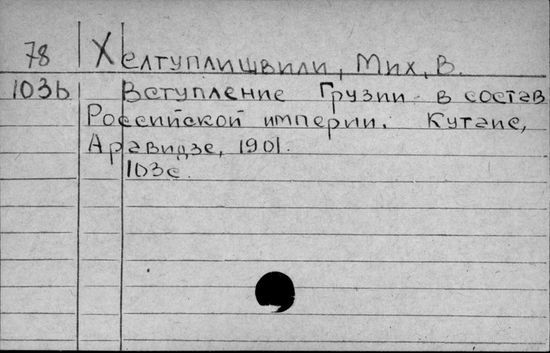 78 Хелтуплишвили, Мих, В.
103b Вступление Грузии в состав
Российской империи. Кутаис,
Аравидзе, 1901.
103с.